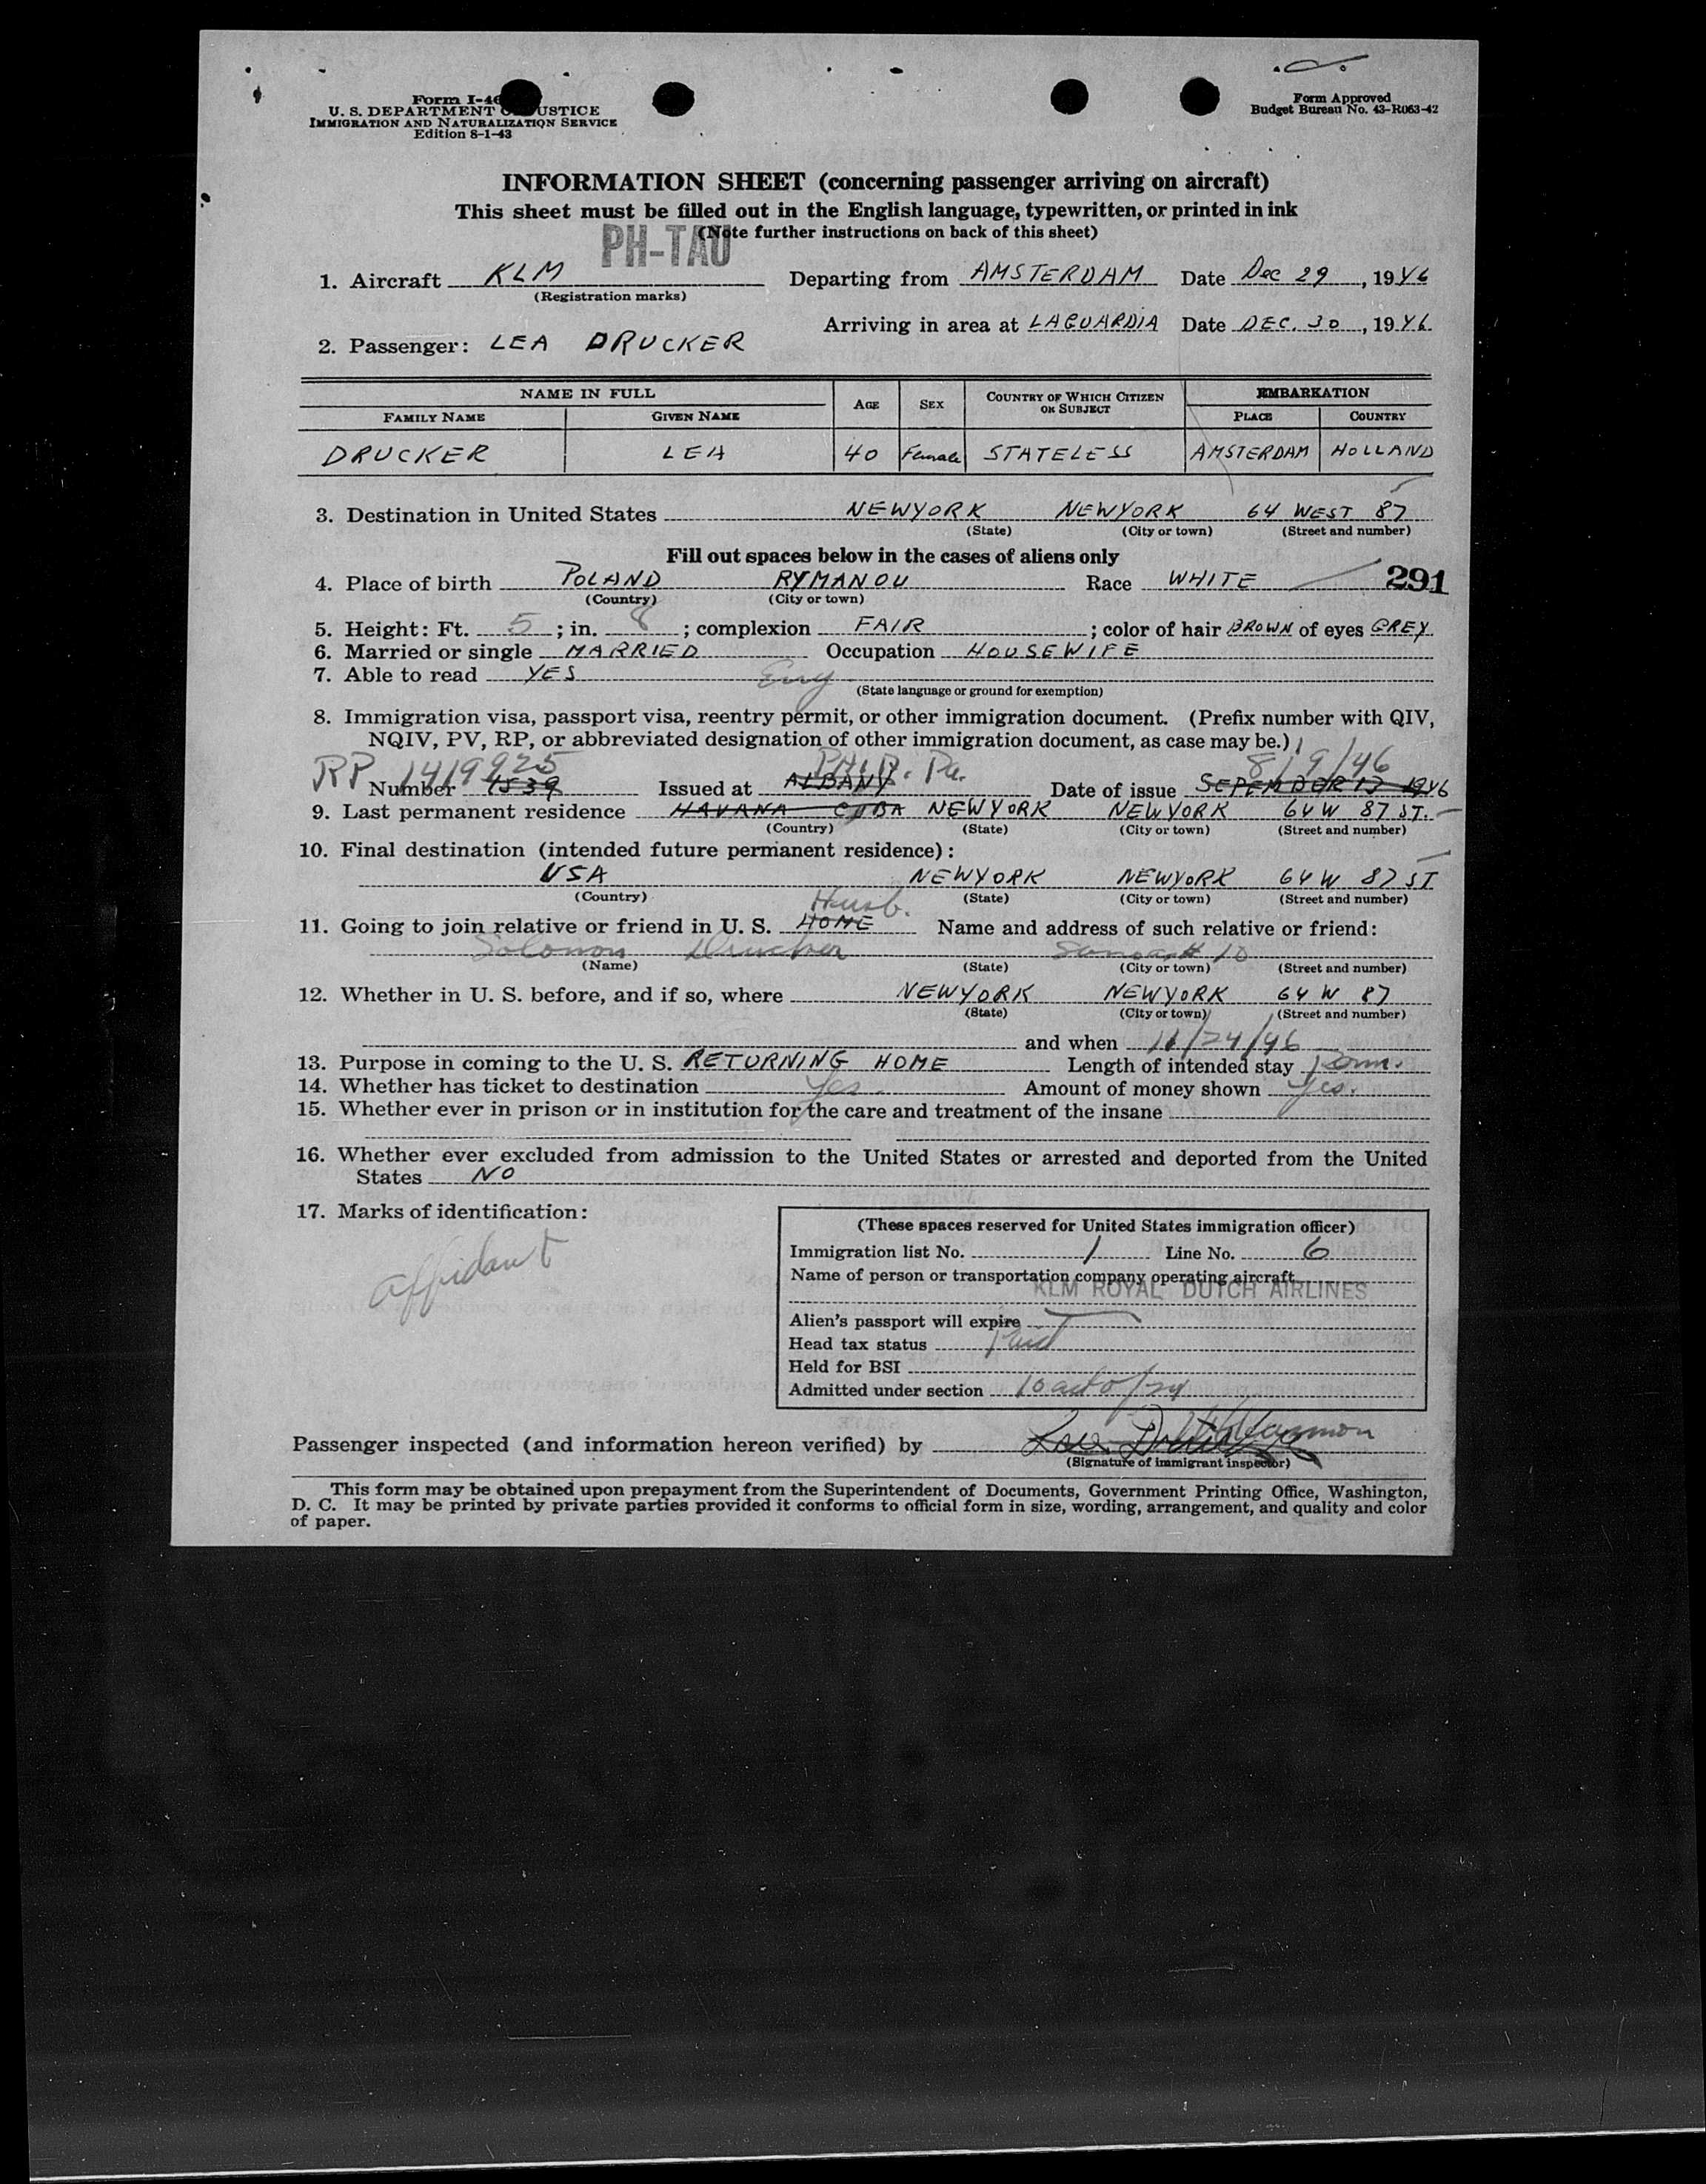 Form I-46
U. S. DEPARTMENT OF JUSTICE
IMMIGRATION AND NATURALIZATION SERVICE
Edition 8-1-43
Form Approved
Budget Bureau No. 43-R063-42
INFORMATION SHEET (concerning passenger arriving on aircraft)
This sheet must be filled out in the English language, typewritten, or printed in ink
(Note further instructions on back of this sheet)
PH-TAU
1. Aircraft KLM Departing from AMSTERDAM Date Dec 29, 1946
(Registration marks)
Arriving in area at LAGUARDIA Date DEC. 30, 1946
2. Passenger: LEA DRUCKER
NAME IN FULL AGE SEX COUNTRY OF WHICH CITIZEN OR SUBJECT EMBARKATION
FAMILY NAME GIVEN NAME PLACE COUNTRY
DRUCKER LEA 40 Female STATELESS AMSTERDAM HOLLAND
3. Destination in United States NEWYORK NEWYORK 64 WEST 87
(State) (City or town) (Street and number)
Fill out spaces below in the cases of aliens only
4. Place of birth POLAND RYMANOU Race WHITE 291
(Country) (City or town)
5. Height: Ft. 5; in. 8; complexion FAIR; color of hair BROWN of eyes GREY
6. Married or single MARRIED Occupation HOUSEWIFE
7. Able to read YES Eng
(State language or ground for exemption)
8. Immigration visa, passport visa, reentry permit, or other immigration document. (Prefix number with QIV,
NQIV, PV, RP, or abbreviated designation of other immigration document, as case may be.)
RP 1419925 Phila. Pa. 8/9/46
Number 1539 Issued at ALBANY Date of issue SEPEMBER 13 1946
9. Last permanent residence HAVANA CUBA NEWYORK NEWYORK 64 W 87 ST.
(Country) (State) (City or town) (Street and number)
10. Final destination (intended future permanent residence):
USA NEWYORK NEWYORK 64 W 87 ST
(Country) (State) (City or town) (Street and number)
Husb.
11. Going to join relative or friend in U. S. HOME Name and address of such relative or friend:
Solomon Drucker Same as # 10
(Name) (State) (City or town) (Street and number)
12. Whether in U. S. before, and if so, where NEWYORK NEWYORK 64 W 87
(State) (City or town) (Street and number)
and when 11/24/46
13. Purpose in coming to the U. S. RETURNING HOME Length of intended stay Perm.
14. Whether has ticket to destination Yes. Amount of money shown yes.
15. Whether ever in prison or in institution for the care and treatment of the insane
16. Whether ever excluded from admission to the United States or arrested and deported from the United
States NO
17. Marks of identification:
affidavit
(These spaces reserved for United States immigration officer)
Immigration list No. 1 Line No. 6
Name of person or transportation company operating aircraft
KLM ROYAL DUTCH AIRLINES
Alien's passport will expire
Head tax status Paid
Held for BSI
Admitted under section
Passenger inspected (and information hereon verified) by
(Signature of immigrant inspector)
This form may be obtained upon prepayment from the Superintendent of Documents, Government Printing Office, Washington,
D. C. It may be printed by private parties provided it conforms to official form in size, wording, arrangement, and quality and color
of paper.